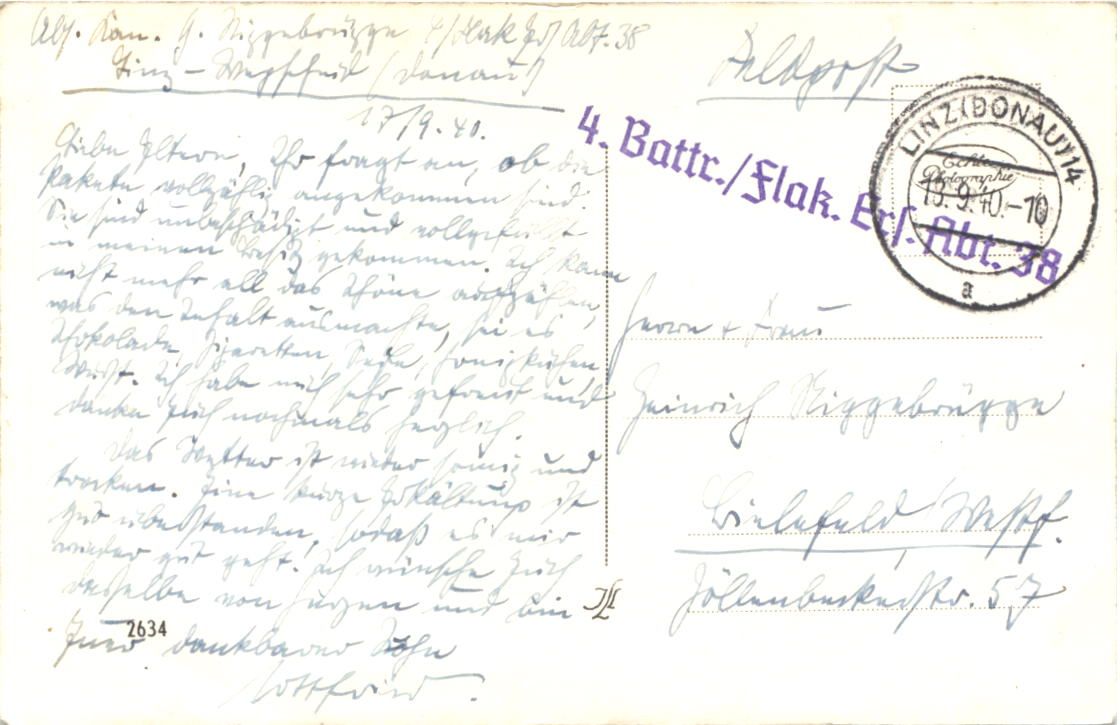 Abs. Kan. G. Niggebrügge 4/Flak Ers. Abt. 38
Linz - Wegscheid (Donau)
17/9. 40.
Liebe Eltern, Ihr fragt an, ob die
Pakete vollzählig angekommen sind.
Sie sind unbeschädigt und vollgefüllt
in meinen Besitz gekommen. Ich kann
nicht mehr all das Schöne aufzählen,
was den Inhalt ausmachte, sei es
Schokolade, Zigaretten, Seife, Honigkuchen,
Wurst. Ich habe mich sehr gefreut und
danke Euch nochmals herzlich.
Das Wetter ist wieder sonnig und
trocken. Eine kurze Erkältung ist
gut überstanden, sodaß es mir
wieder gut geht. Ich wünsche Euch
dasselbe von Herzen und bin
Euer dankbarer Sohn
Gottfried.
2634
Feldpost
4. Battr./Flak. Ers. Abt. 38
LINZ (DONAU) 14
Echte
Photographie
18.9.40.-10
a
Herrn + Frau
Heinrich Niggebrügge
Bielefeld Westf.
Jöllenbeckerstr. 57